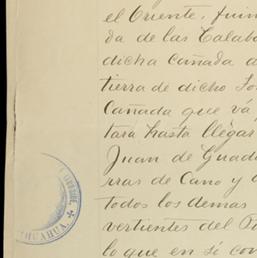 el Oriente, fuim
da de las Calaba
dicha Cañada a
tierra de dicho
Cañada que vá
tara hasta llegar
Juan de Guada
rras de Cano y
todos los demas
vertientes del
lo que en sí con
CHIHUAHUA